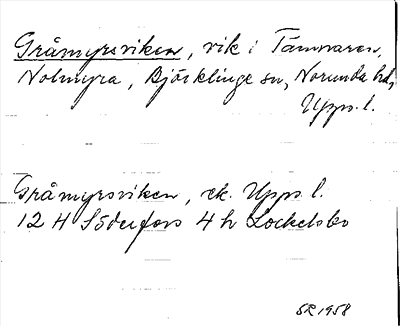 Gråmyrsviken, vik i Tämnaren,
Nolmyra, Björklinge sn, Norunda hd,
Upps. l.
Gråmyrsviken, ek. Upps. l.
12 H Söderfors 4 h Lockelsbo
SR 1958